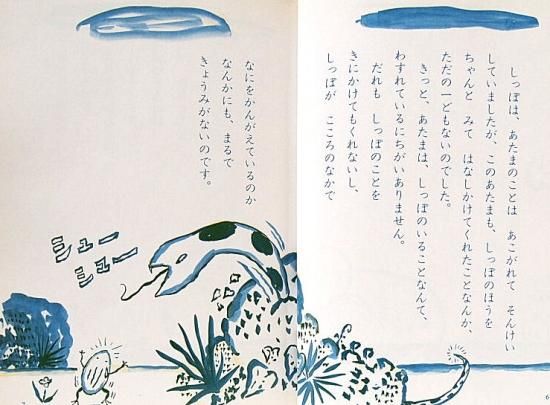 しっぽは、あたまのことは　あこがれて　そんけい
していましたが、このあたまも、しっぽのほうを
ちゃんと　みて　はなしかけてくれたことなんか、
ただの一どもないのでした。
きっと、あたまは、しっぽのいることなんて、
わすれているにちがいありません。
だれも　しっぽのことを
きにかけてもくれないし、
しっぽが　こころのなかで
なにをかんがえているのか
なんかにも、まるで
きょうみがないのです。
シュー
シュー
6